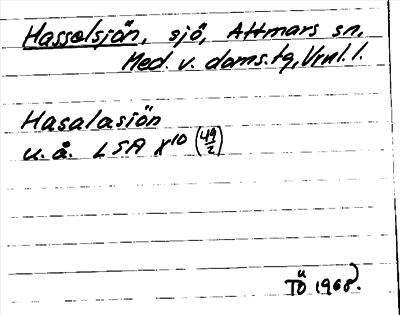 Hasselsjön, sjö, Attmars sn,
Med. v. doms.tg, Vrnl. l.
Hasalasiön
u.å. LSA X10 (49/2)
TÖ 1968.